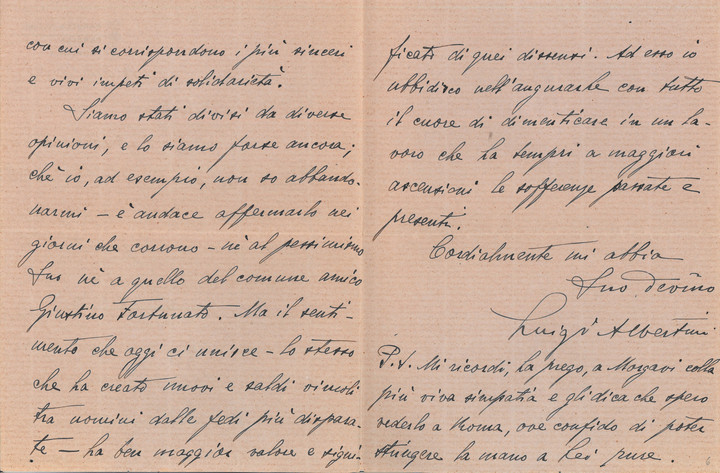 con cui si corrispondono i più sinceri
e vivi impeti di solidarietà.
Siamo stati divisi da diverse
opinioni, e lo siamo forse ancora;
chè io, ad esempio, non so abbando-
narmi – è audace affermarlo nei
giorni che corrono – nè al pessimismo
Suo nè a quello del comune amico
Giustino Fortunato. Ma il senti-
mento che oggi ci unisce – lo stesso
che ha creato nuovi e saldi vincoli
tra uomini dalle fedi più dispara-
te – ha ben maggior valore e signi-
ficato di quei dissensi. Ad esso io
ubbidisco nell'augurarle con tutto
il cuore di dimenticare in un la-
voro che la tempri a maggiori
ascensioni le sofferenze passate e
presenti.
Cordialmente mi abbia
Suo devmo
Luigi Albertini
P.S. Mi ricordi, la prego, a Morgavi colla
più viva simpatia e gli dica che spero
vederlo a Roma, ove confido di poter
stringere la mano a Lei pure.